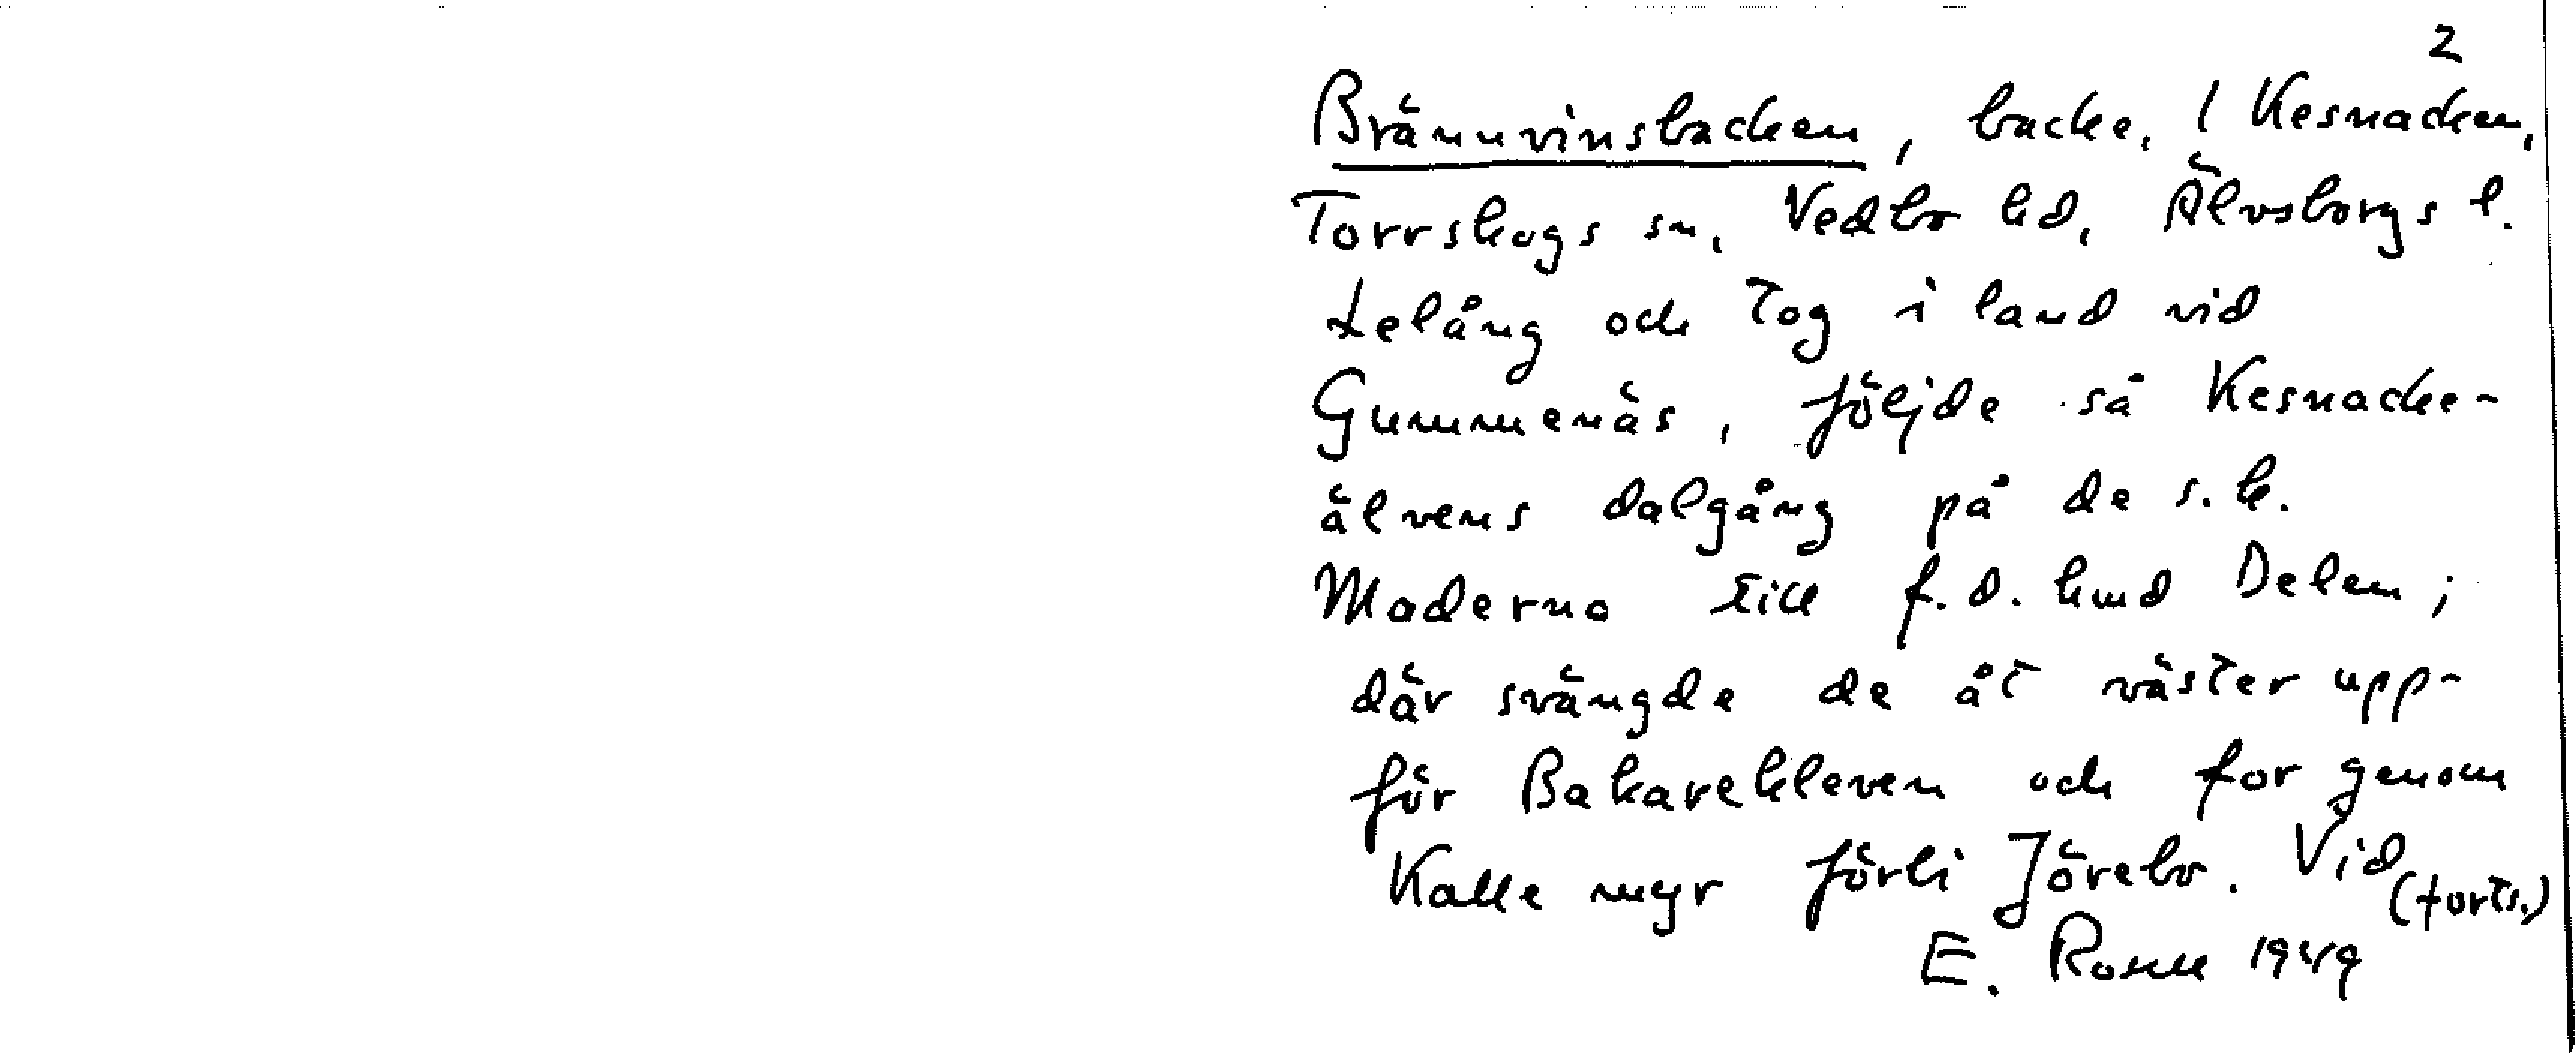 2
Brännvinsbacken, backe, l Kesnacken,
Torrskogs sn, Vedbo hd, Älvsborgs l.
Lelång och tog i land vid
Gummenäs, följde så Kesnacke-
älvens dalgång på de s.k.
Maderna till f.d. hmd Delen;
där svängde de åt väster upp-
för Bakarekleven och for genom
Kalle myr förbi Jörebo. Vid
(forts.)
E. 1949